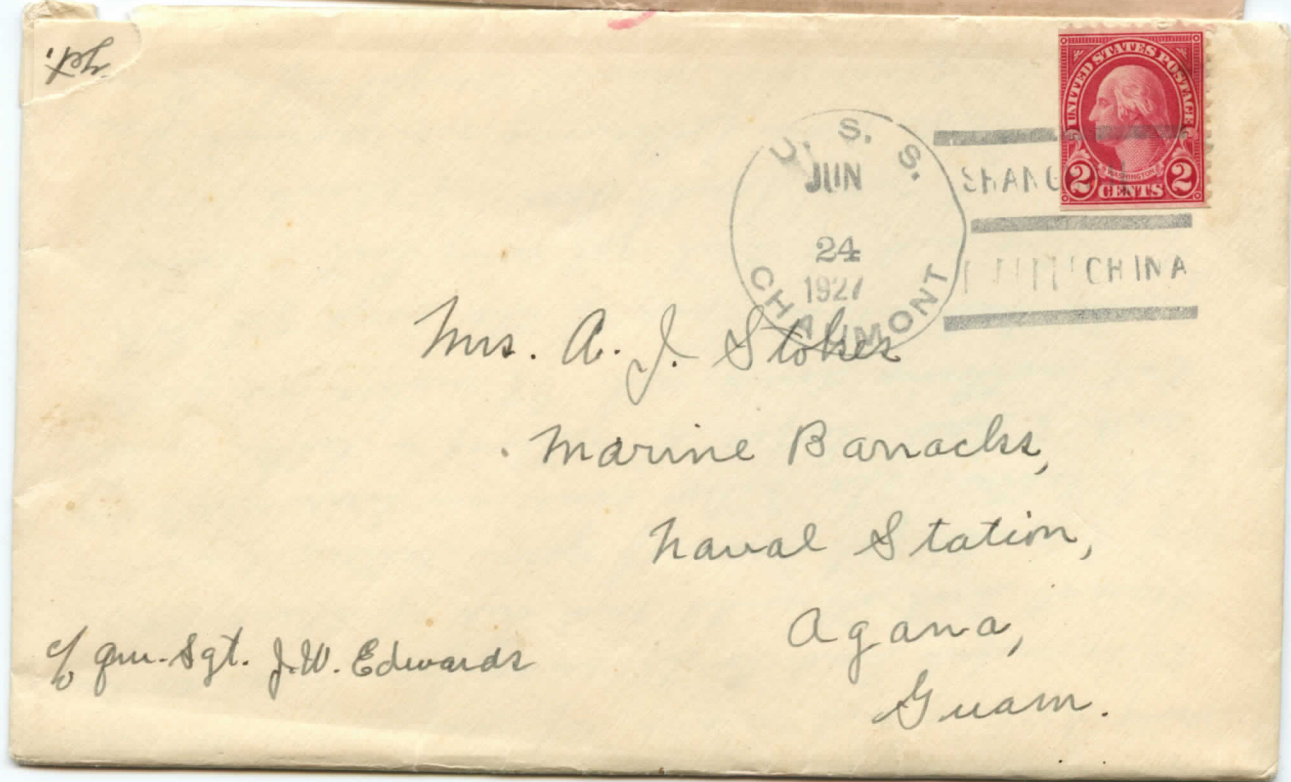 UNITED STATES POSTAGE
WASHINGTON
2 CENTS 2
U. S. S.
JUN
24
1927
CHAUMONT
SHANG
CHINA
Mrs. A. J. Stokes
Marine Barracks,
Naval Station,
Agana,
Guam.
c/o qm-Sgt. J.W. Edwards